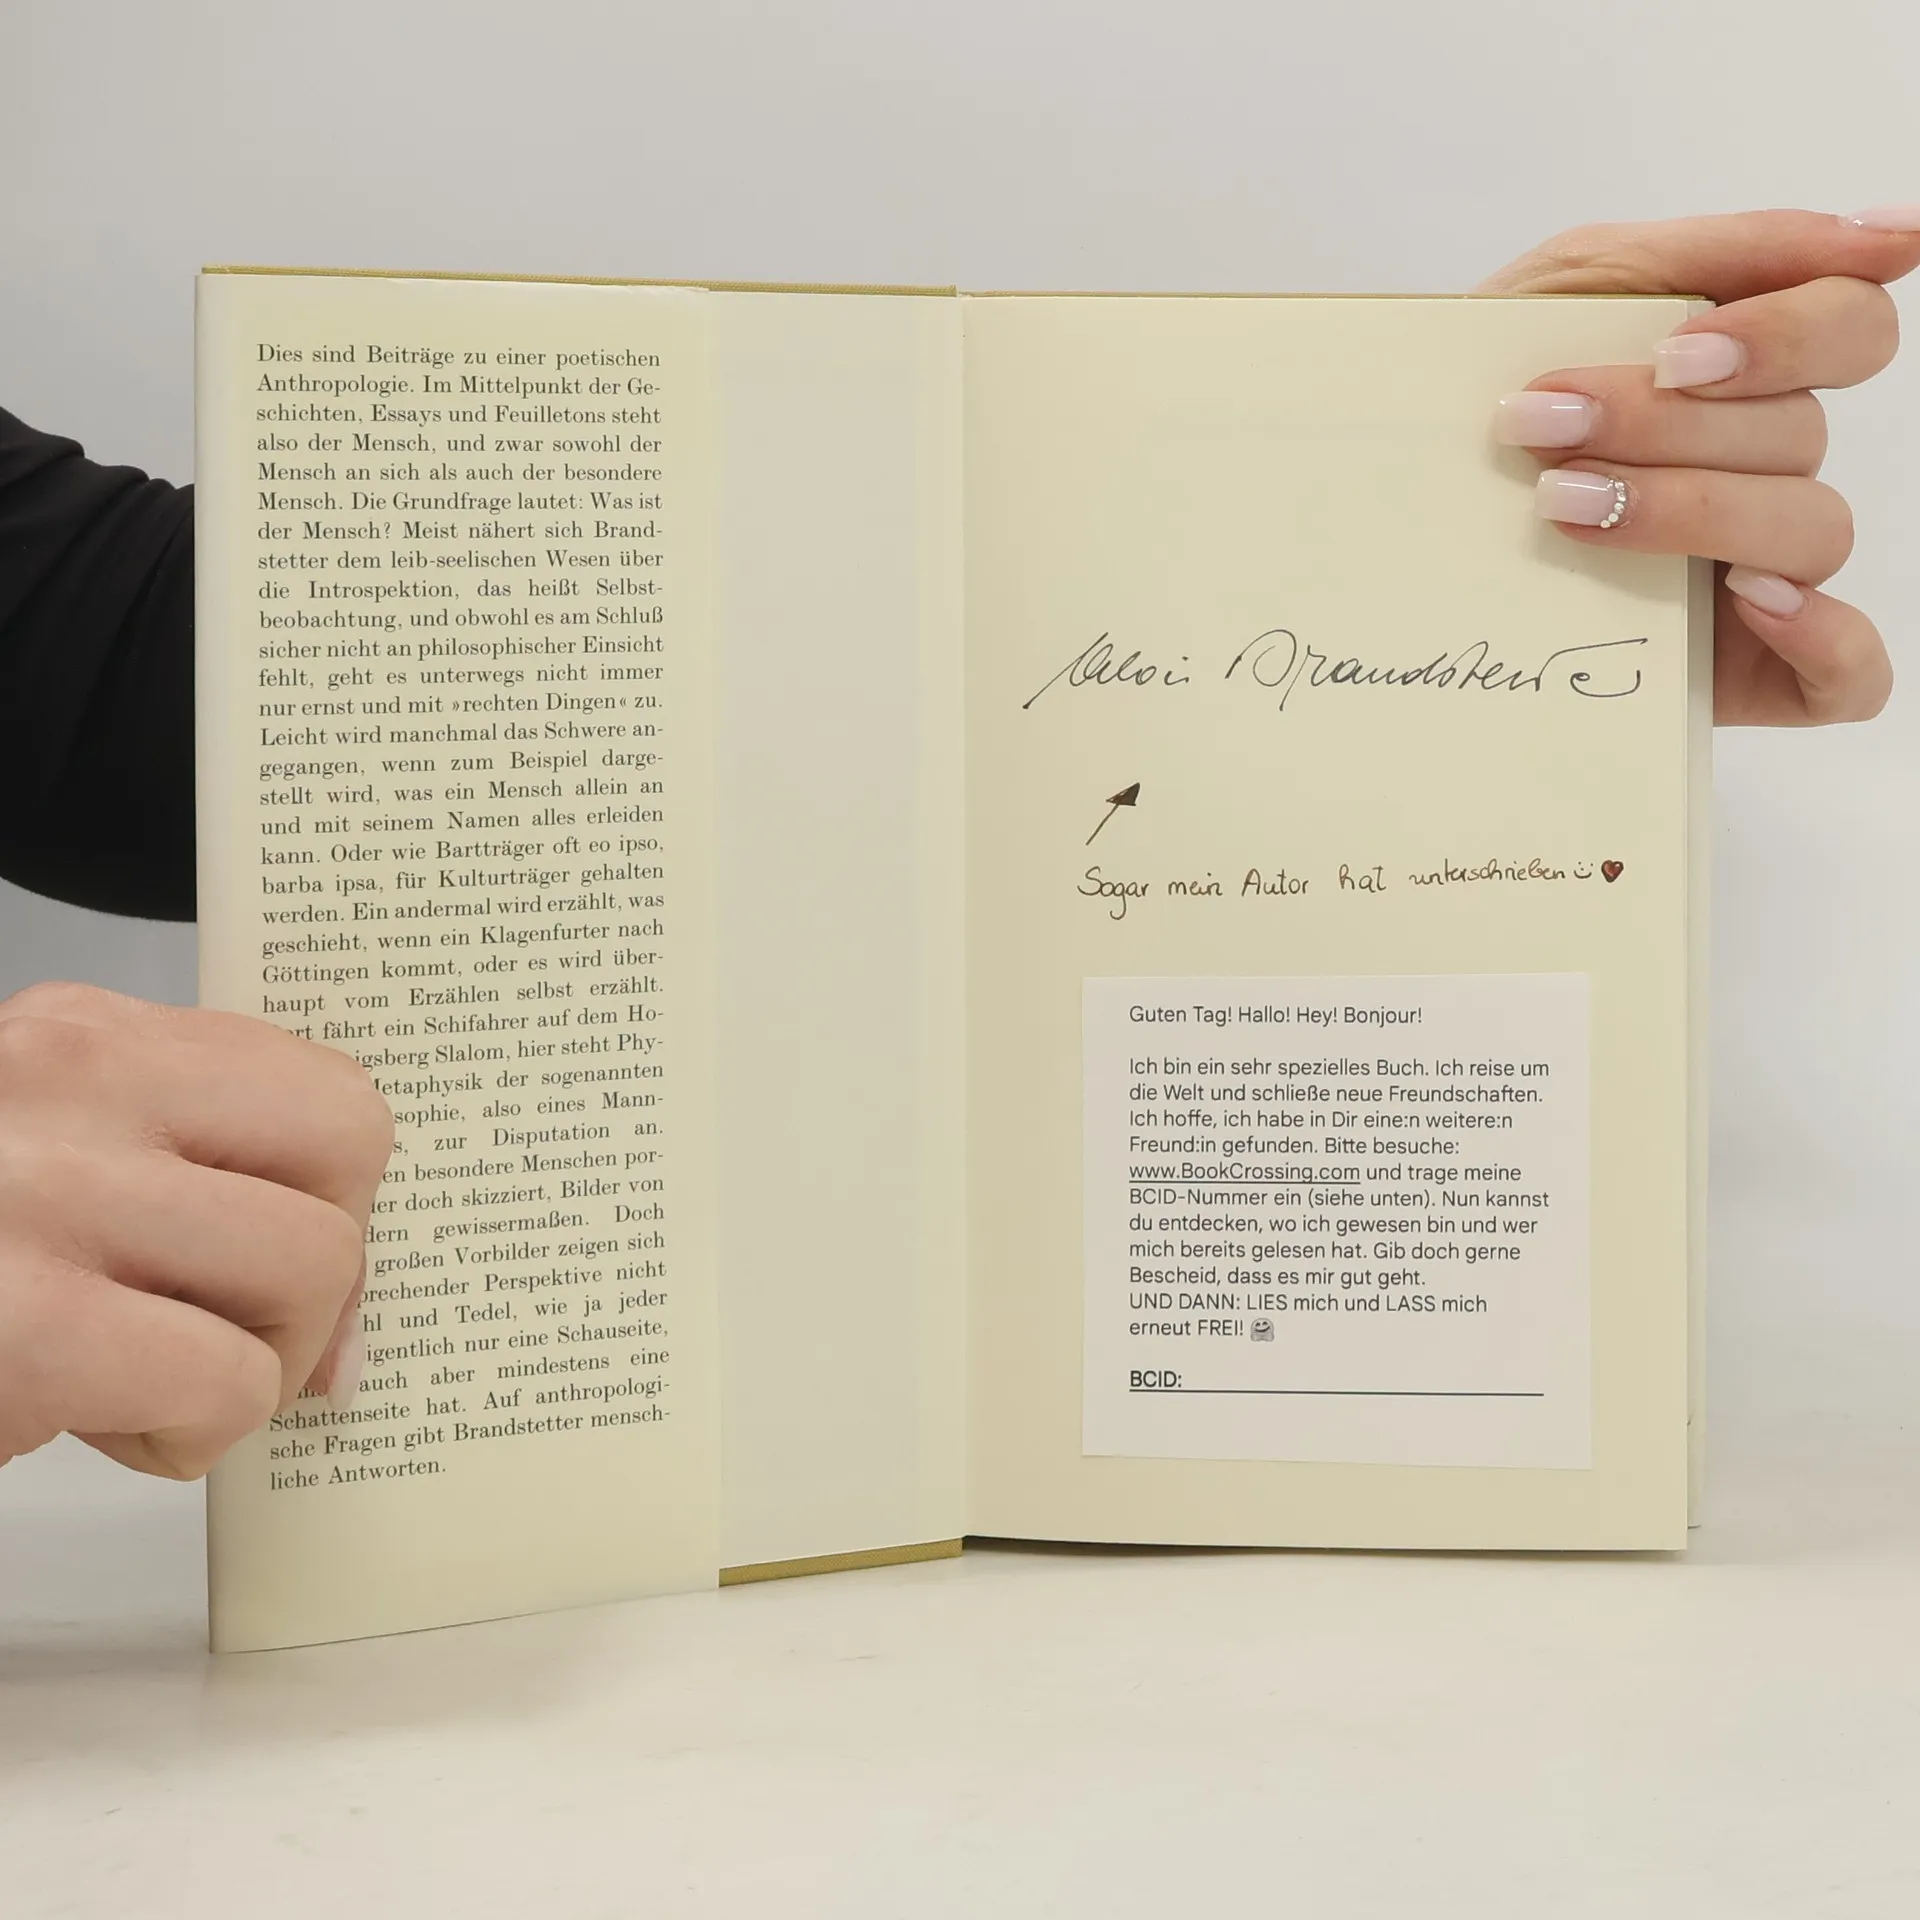 Dies sind Beiträge zu einer poetischen
Anthropologie. Im Mittelpunkt der Ge-
schichten, Essays und Feuilletons steht
also der Mensch, und zwar sowohl der
Mensch an sich als auch der besondere
Mensch. Die Grundfrage lautet: Was ist
der Mensch? Meist nähert sich Brand-
stetter dem leib-seelischen Wesen über
die Introspektion, das heißt Selbst-
beobachtung, und obwohl es am Schluß
sicher nicht an philosophischer Einsicht
fehlt, geht es unterwegs nicht immer
nur ernst und mit »rechten Dingen« zu.
Leicht wird manchmal das Schwere an-
gegangen, wenn zum Beispiel darge-
stellt wird, was ein Mensch allein an
und mit seinem Namen alles erleiden
kann. Oder wie Bartträger oft eo ipso,
barba ipsa, für Kulturträger gehalten
werden. Ein andermal wird erzählt, was
geschieht, wenn ein Klagenfurter nach
Göttingen kommt, oder es wird über-
haupt vom Erzählen selbst erzählt.
fährt ein Schifahrer auf dem Ho-
igsberg Slalom, hier steht Phy-
etaphysik der sogenannten
sophie, also eines Mann-
s, zur Disputation an.
en besondere Menschen por-
er doch skizziert, Bilder von
dern gewissermaßen. Doch
großen Vorbilder zeigen sich
prechender Perspektive nicht
hl und Tedel, wie ja jeder
igentlich nur eine Schauseite,
auch aber mindestens eine
Schattenseite hat. Auf anthropologi-
sche Fragen gibt Brandstetter mensch-
liche Antworten.
Alois Brandstetter
Sogar mein Autor hat unterschrieben
Guten Tag! Hallo! Hey! Bonjour!
Ich bin ein sehr spezielles Buch. Ich reise um
die Welt und schließe neue Freundschaften.
Ich hoffe, ich habe in Dir eine:n weitere:n
Freund:in gefunden. Bitte besuche:
www.BookCrossing.com und trage meine
BCID-Nummer ein (siehe unten). Nun kannst
du entdecken, wo ich gewesen bin und wer
mich bereits gelesen hat. Gib doch gerne
Bescheid, dass es mir gut geht.
UND DANN: LIES mich und LASS mich
erneut FREI! 🤗
BCID: